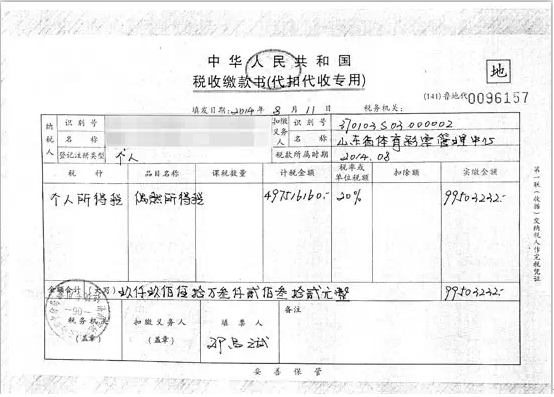 中华人民共和国
税收缴款书(代扣代收专用)
地
(141)鲁地代 0096157
填发日期:2014年8月11日 税务机关:
纳税人 识别号 扣缴义务人 识别号 370103S03000002
名称 名称 山东省体育彩票管理中心
登记注册类型 个人 税款所属时期 2014.08
税种 品目名称 课税数量 计税金额 税率或单位税额 扣除额 实缴金额
个人所得税 偶然所得税 497516160.- 20% 99503232.-
金额合计 (大写) 玖仟玖佰伍拾万叁仟贰佰叁拾贰元整 99503232.-
税务机关 (盖章) 扣缴义务人 (盖章) 填票人 备注
妥善保管
第一联(收据)交纳税人作完税凭证